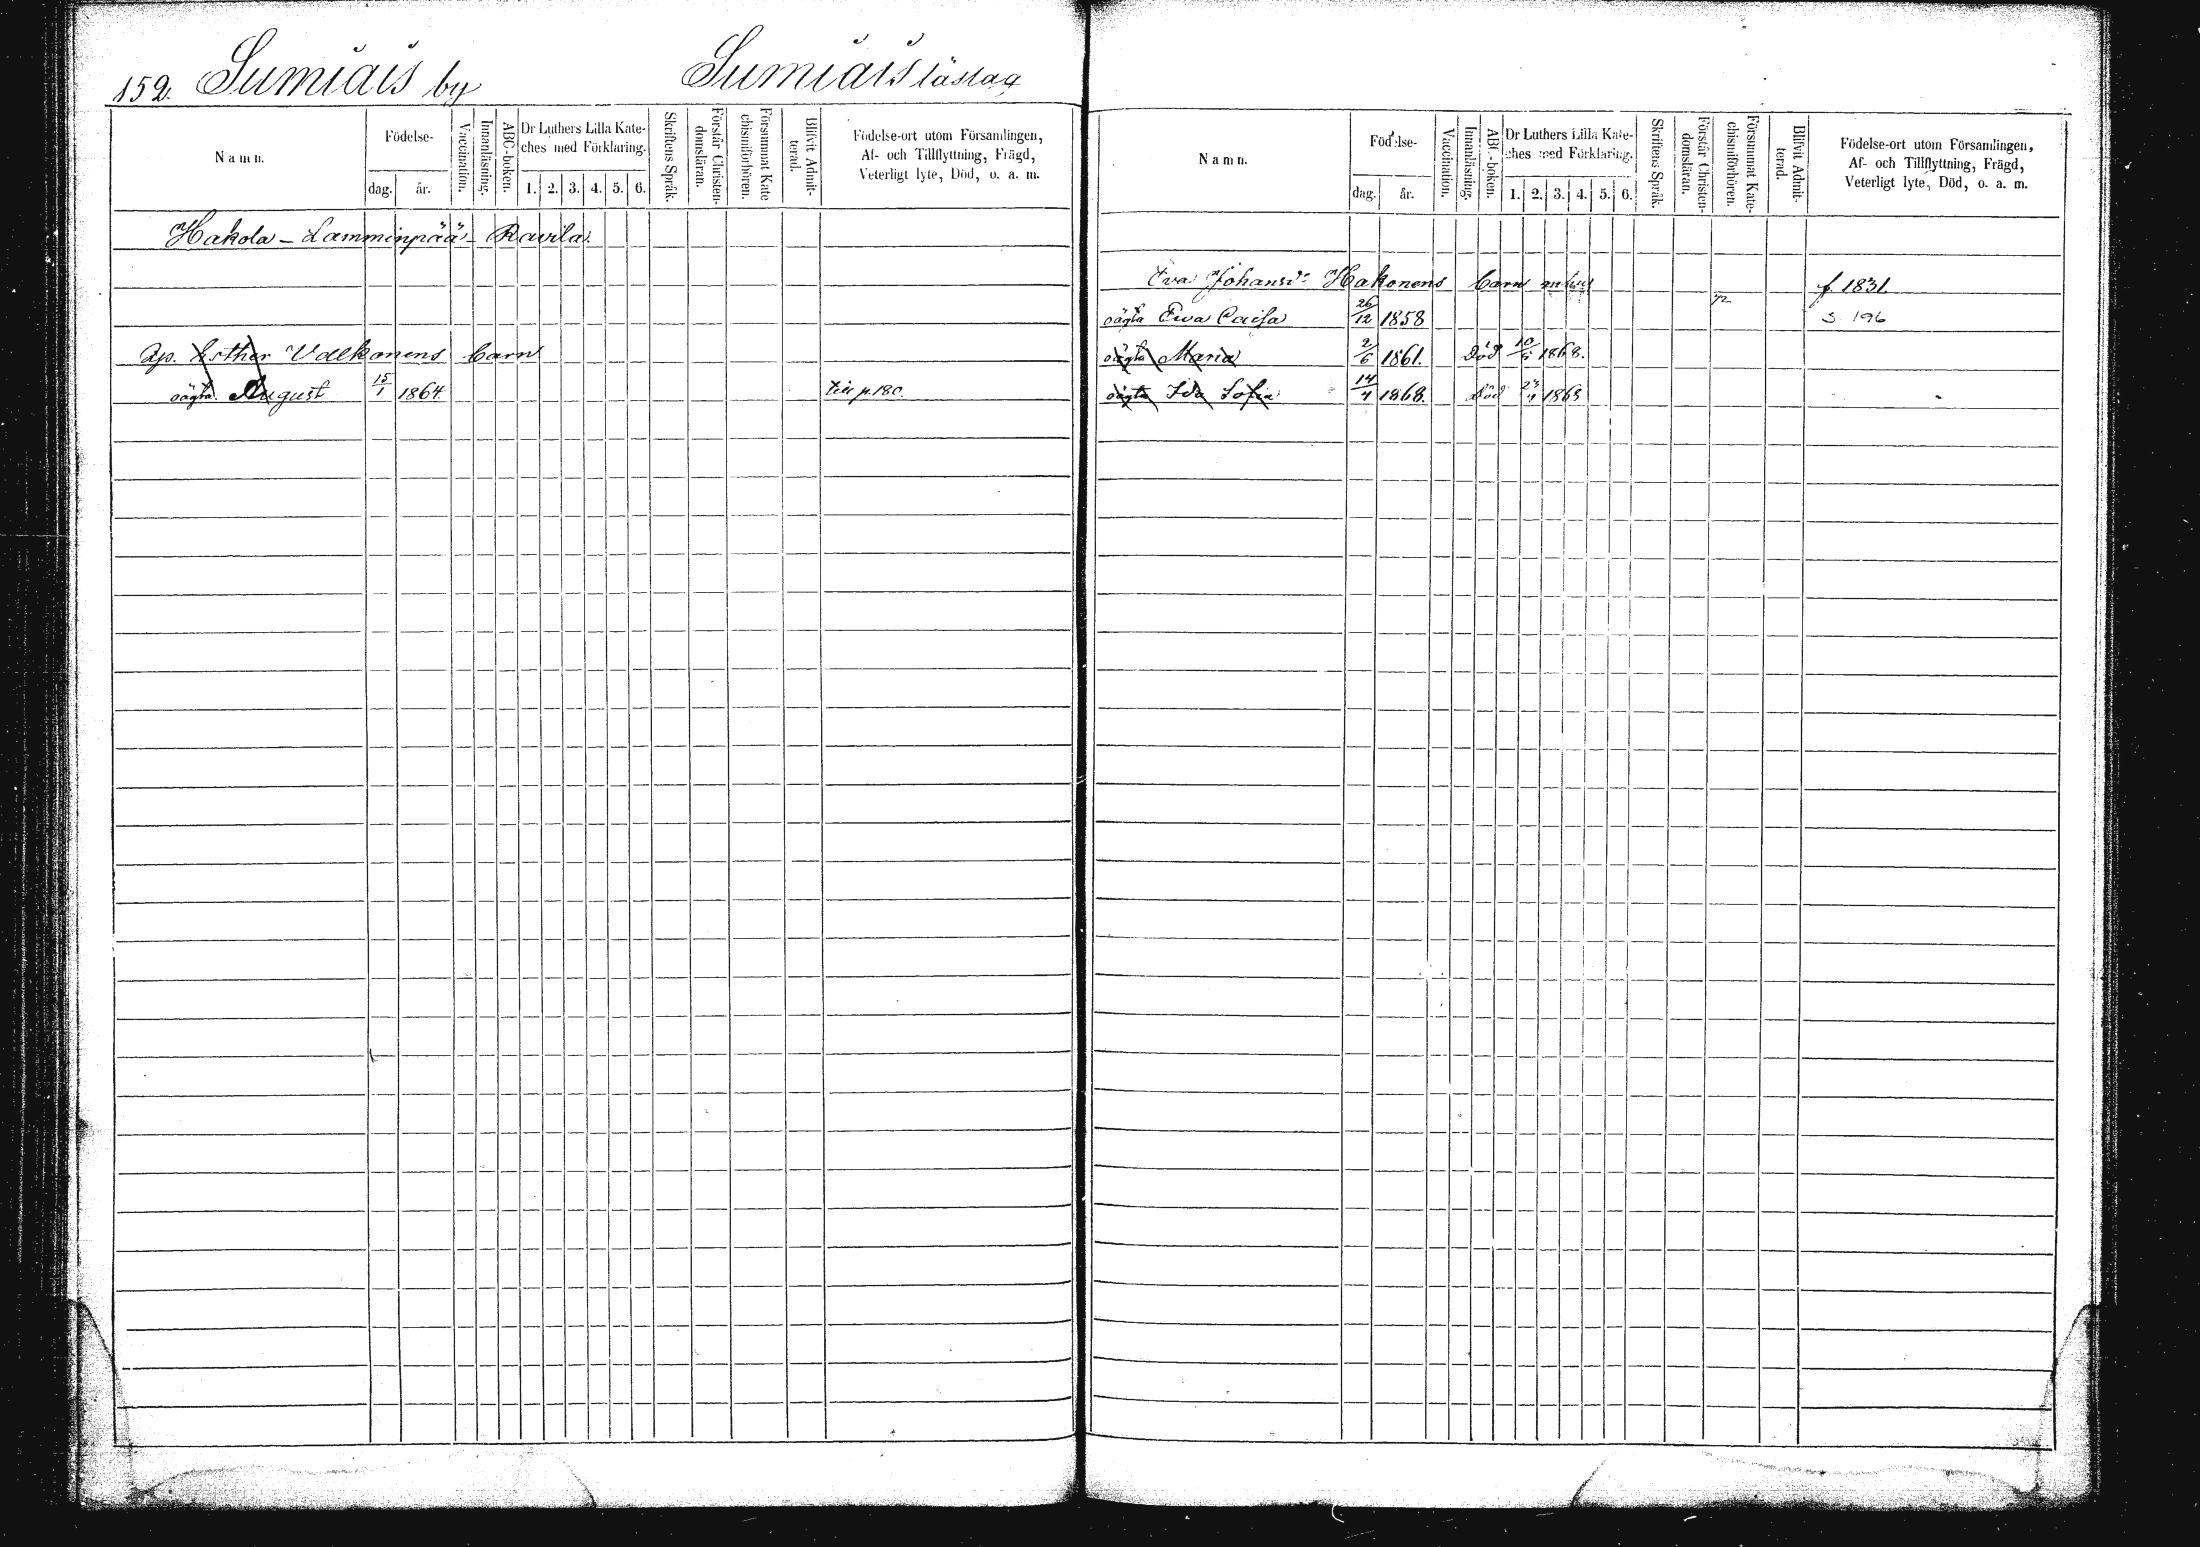 152. Sumiais by Sumiais läslag
Namn. Födelse- dag. år. Vaccination. Innanläsning. ABC-boken. Dr Luthers Lilla Kate-ches med Förklaring. 1. 2. 3. 4. 5. 6. Skriftens Språk. Förstår Christen-domsläran. Försummat Kate-chismiförhören. Blifvit Admit-terad. Födelse-ort utom Församlingen,
Af- och Tillflyttning, Frägd,
Veterligt lyte, Död, o. a. m.
Hakola – Lamminpää – Ravila.
Ap. Esther Valkonens barn
oägta August 15/1 1864. till p. 180.
Namn. Födelse- dag. år. Vaccination. Innanläsning. ABC-boken. Dr Luthers Lilla Kate-ches med Förklaring. 1. 2. 3. 4. 5. 6. Skriftens Språk. Förstår Christen-domsläran. Försummat Kate-chismiförhören. Blifvit Admit-terad. Födelse-ort utom Församlingen,
Af- och Tillflyttning, Frägd,
Veterligt lyte, Död, o. a. m.
Eva Johansd:r Hakonens barn f. 1831.
oägta Ewa Caisa 26/12 1858 s 196
oägta Maria 2/6 1861. död 1868.
oägta Ida Sofia 14/4 1868. död 1868